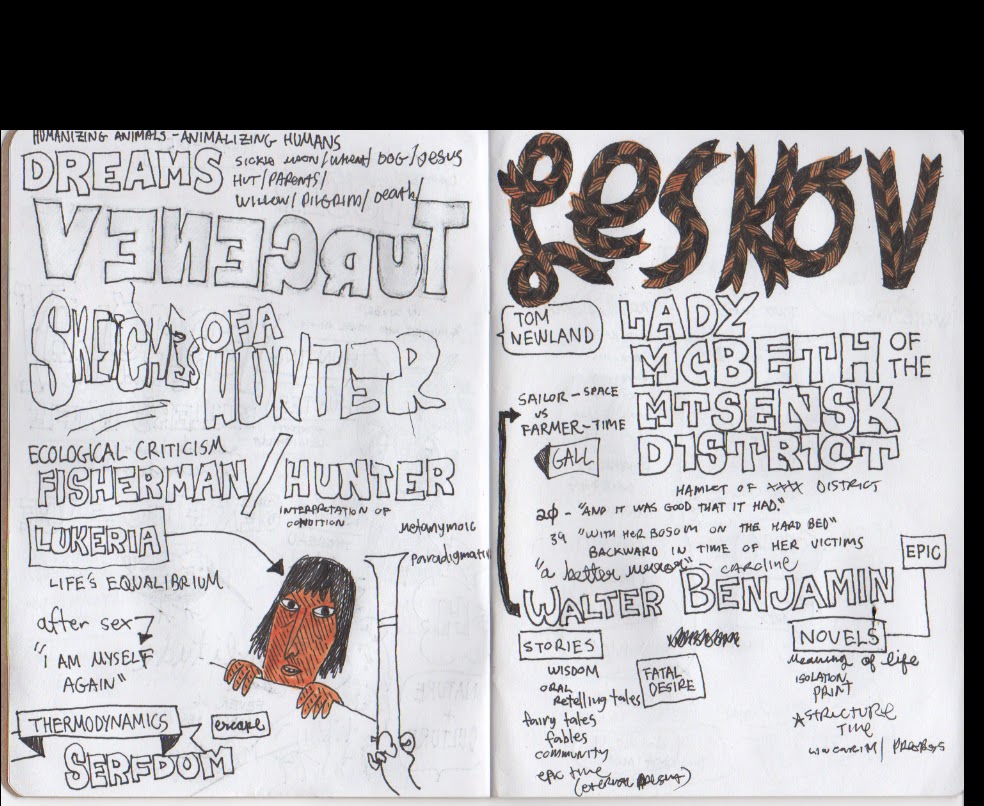 HUMANIZING ANIMALS - ANIMALIZING HUMANS
DREAMS
SICKLE MOON / WHEAT / DOG / JESUS
HUT / PARENTS /
WILLOW / PILGRIM / Death /
TURGENEV
SKETCHES OF A
HUNTER
ECOLOGICAL CRITICISM
FISHERMAN / HUNTER
INTERPRETATION OF
CONDITION
metonymoic
paradigmatic
LUKERIA
LIFE'S EQUALIBRIUM
after sex
"I AM MYSELF
AGAIN"
THERMODYNAMICS
escape
SERFDOM
LESKOV
TOM
NEWLAND
LADY
MCBETH OF
THE
MTSENSK
DISTRICT
SAILOR - SPACE
VS
FARMER - TIME
GALL
HAMLET OF XXX DISTRICT
20 - "AND IT WAS GOOD THAT IT HAD."
39 "WITH HER BOSOM ON THE HARD BED"
BACKWARD IN TIME OF HER VICTIMS
"a better mirror" - CAROLINE
EPIC
WALTER BENJAMIN
STORIES
NOVELS
WISDOM
ORAL
Retelling tales
fairy tales
fables
COMMUNITY
epic time
(eternal present)
FATAL
DESIRE
Meaning of life
ISOLATION
PRINT
STRUCTURE
TIME